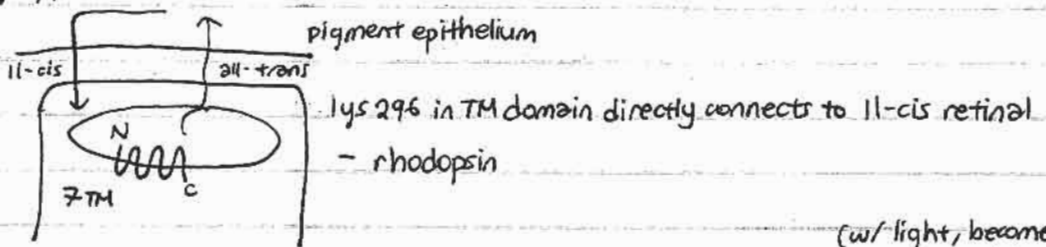 pigment epithelium
11-cis
all-trans
lys 296 in TM domain directly connects to 11-cis retinal
N
- rhodopsin
7TM
C
(w/ light, become